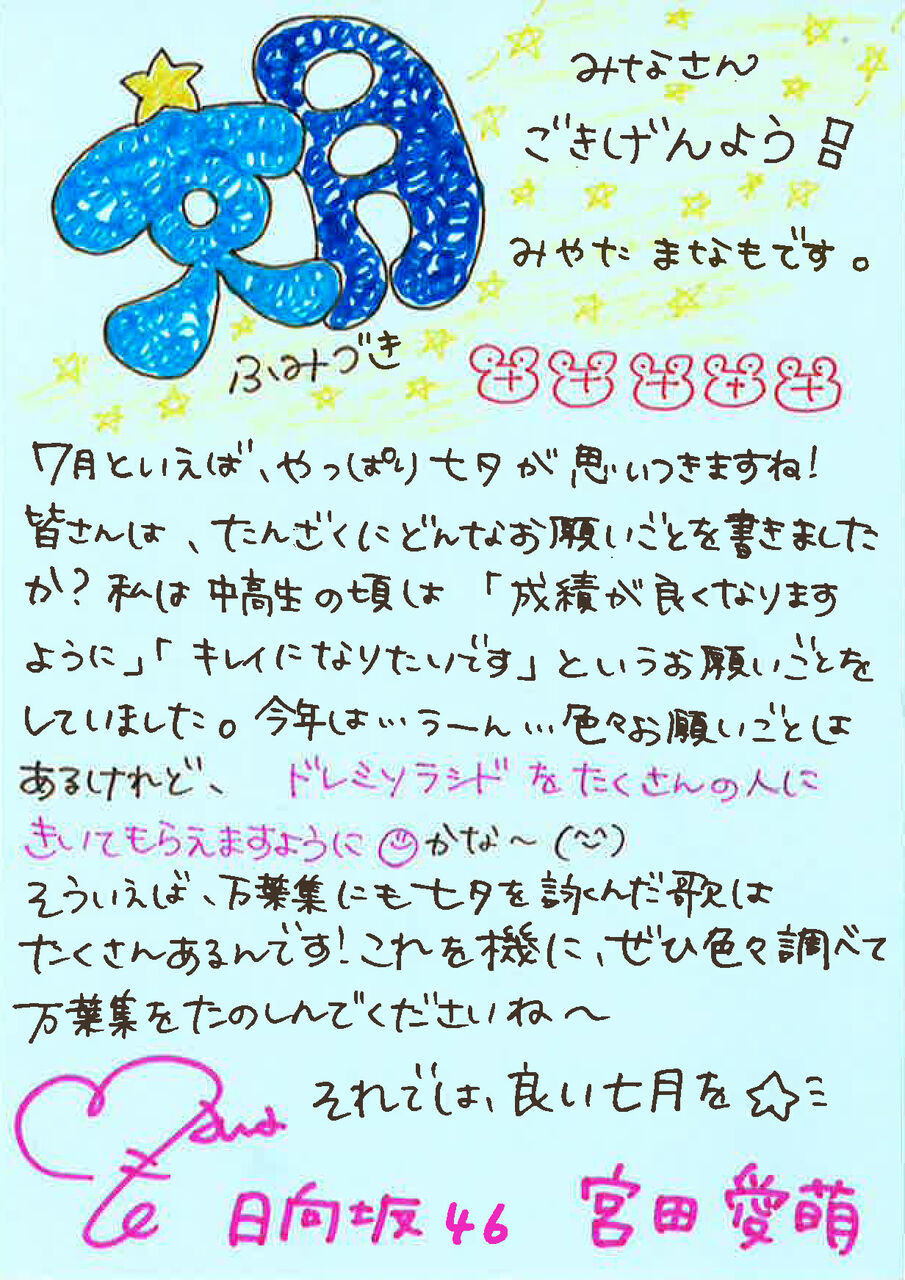 文月
みなさん
ごきげんよう!!
みやた まなもです。
ふみづき
7月といえば、やっぱり七夕が思いつきますね!
皆さんは、たんざくにどんなお願いごとを書きました
か?私は中高生の頃は「成績が良くなります
ように」「キレイになりたいです」というお願いごとを
していました。今年は…うーん…色々お願いごとは
あるけれど、ドレミソラシドをたくさんの人に
きいてもらえますように☺かな〜(^^)
そういえば、万葉集にも七夕を詠んだ歌は
たくさんあるんです!これを機に、ぜひ色々調べて
万葉集をたのしんでくださいね〜
それでは、良い七月を☆ミ
日向坂46 宮田愛萌